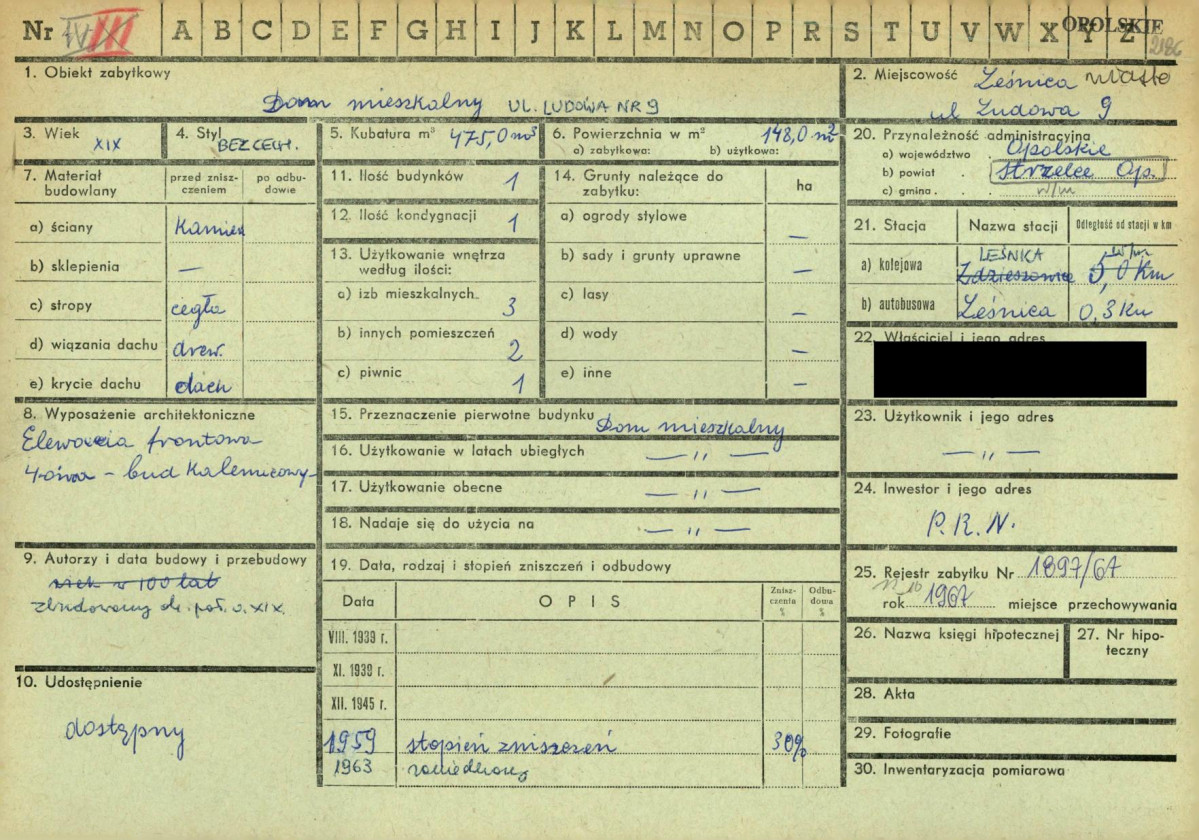 Nr IV III A B C D E F G H I J K L M N O P R S T U V W X Y Z OPOLSKIE
2186
1. Obiekt zabytkowy
Dom mieszkalny UL. LUDOWA NR 9
2. Miejscowość Leśnica miasto
ul Ludowa 9
3. Wiek
XIX
4. Styl
BEZCECH.
5. Kubatura m³ 475,0 m³
6. Powierzchnia w m² 148,0 m²
a) zabytkowa: b) użytkowa:
20. Przynależność administracyjna
a) województwo Opolskie
b) powiat Strzelce Op.
c) gmina w/m
7. Materiał budowlany
przed zniszczeniem
po odbudowie
a) ściany Kamień
b) sklepienia —
c) stropy cegła
d) wiązania dachu drew.
e) krycie dachu dach
11. Ilość budynków 1
12. Ilość kondygnacji 1
13. Użytkowanie wnętrza
według ilości:
a) izb mieszkalnych 3
b) innych pomieszczeń 2
c) piwnic 1
14. Grunty należące do
zabytku: ha
a) ogrody stylowe —
b) sady i grunty uprawne —
c) lasy —
d) wody —
e) inne —
21. Stacja Nazwa stacji Odległość od stacji w km
a) kolejowa LEŚNKA Zdzieszowice w/m 5,0 Km
b) autobusowa Leśnica 0,3 Km
22. Właściciel i jego adres
8. Wyposażenie architektoniczne
Elewacja frontowa
4-osiowa – bud Kalenicowy
15. Przeznaczenie pierwotne budynku Dom mieszkalny
16. Użytkowanie w latach ubiegłych — „ —
17. Użytkowanie obecne — „ —
18. Nadaje się do użycia na — „ —
23. Użytkownik i jego adres
— „ —
24. Inwestor i jego adres
P.R.N.
9. Autorzy i data budowy i przebudowy
wiek w 100 lat
zbudowany dr. poł. w. XIX.
19. Data, rodzaj i stopień zniszczeń i odbudowy
Data OPIS Zniszczenia % Odbudowa %
VIII. 1939 r.
XI. 1939 r.
XII. 1945 r.
1959 stopień zniszczeń 30%
1963 zaniedbany
25. Rejestr zabytku Nr 1897/67
rok 1967 miejsce przechowywania
26. Nazwa księgi hipotecznej
27. Nr hipoteczny
28. Akta
29. Fotografie
30. Inwentaryzacja pomiarowa
10. Udostępnienie
dostępny